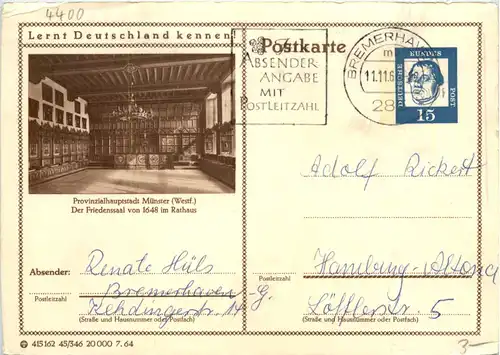 4400
Lernt Deutschland kennen
Postkarte
ABSENDER
ANGABE
MIT
POSTLEITZAHL
BREMERHAV
11.11.6
28
DEUTSCHE BUNDES POST
15
Provinzialhauptstadt Münster (Westf.)
Der Friedenssaal von 1648 im Rathaus
Adolf Rickert
Absender: Renate Hüls
Postleitzahl
Bremerhaven-G.
(Straße und Hausnummer oder Postfach)
Postleitzahl
Hamburg-Altona
Löfflerstr. 5
(Straße und Hausnummer oder Postfach)
415162 45/346 20 000 7. 64
3-